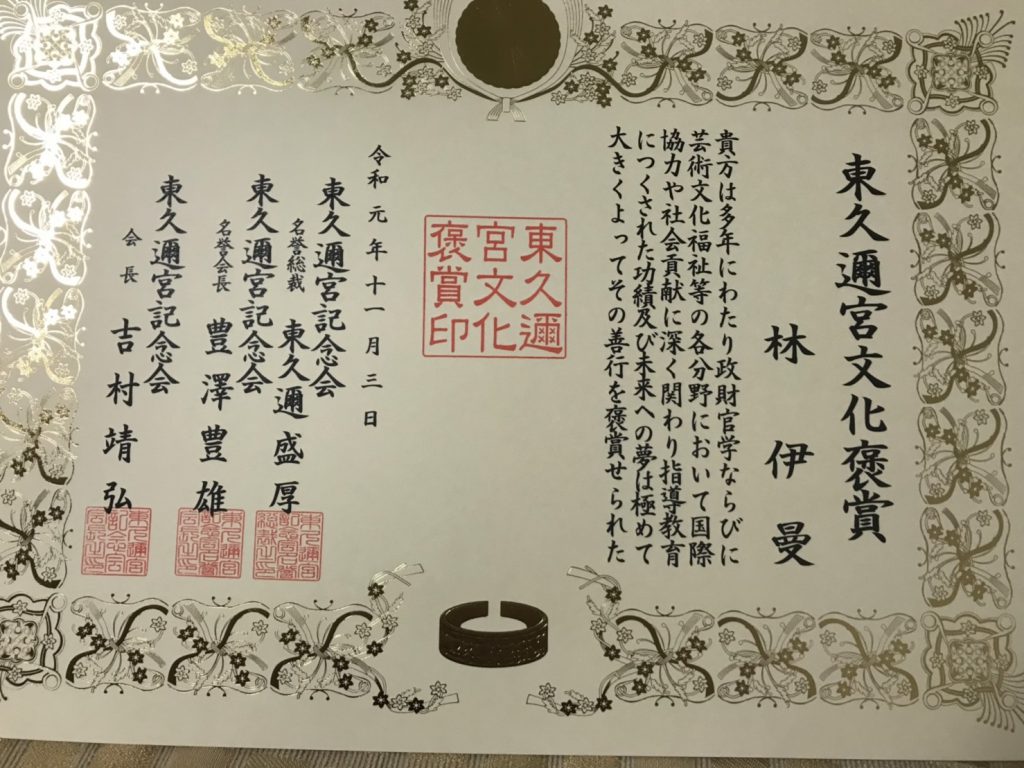 東久邇宮文化褒賞
林伊曼
貴方は多年にわたり政財官学ならびに
芸術文化福祉等の各分野において国際
協力や社会貢献に深く関わり指導教育
につくされた功績及び未来への夢は極めて
大きくよってその善行を褒賞せられた
東久邇
宮文化
褒賞印
令和元年十一月三日
東久邇宮記念会
名誉総裁 東久邇盛厚
東久邇宮記念会
名誉会長 豊澤豊雄
東久邇宮記念会
会長 吉村靖弘